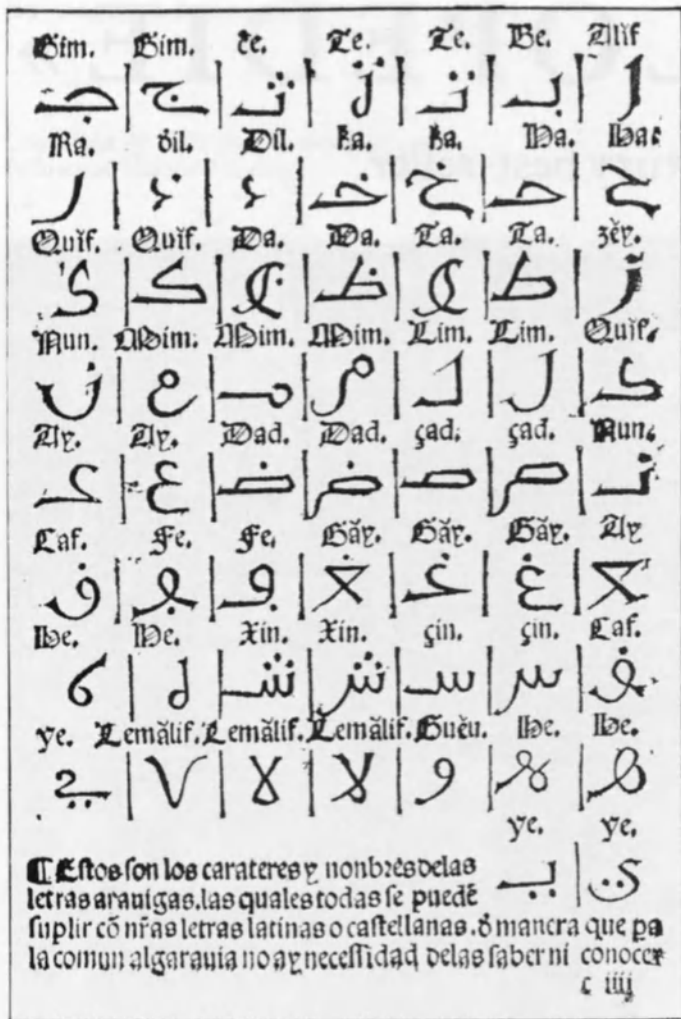 Gim. Gim. ċe. Te. Te. Be. Alif
ا بـ تـ ت ثـ ج جـ
Ra. dil. Dil. ka. ka. Ha. Ha.
ح حـ خ خـ د ذ ر
Quif. Quif. Da. Da. Ta. Ta. zĕy.
ز ط ط ظ ظ كـ ك
Nun. Mim. Mim. Mim. Lim. Lim. Quif.
ك ل لـ م مـ م ن
Ay. Ay. Dad. Dad. çad. çad. Nun.
نـ ص صـ ض ضـ ع عـ
Caf. Fe. Fe. Găy. Găy. Găy. Ay
ـعـ غ غـ ـغـ ڢـ ڢ ف
He. He. Xin. Xin. çin. çin. Caf.
ف س سـ ش شـ ه ه
ye. Lemălif. Lemălif. Lemălif. Guĕu. He. He.
ه ه و لا لا لا ي
ye. ye.
ي يـ
¶ Estos son los carateres y nonbres delas
letras arauigas, las quales todas se puedẽ
suplir cõ nr̃as letras latinas o castellanas. d̃ manera que pa
la comun algarauia no ay necessidad delas saber ni conocer
c iiij